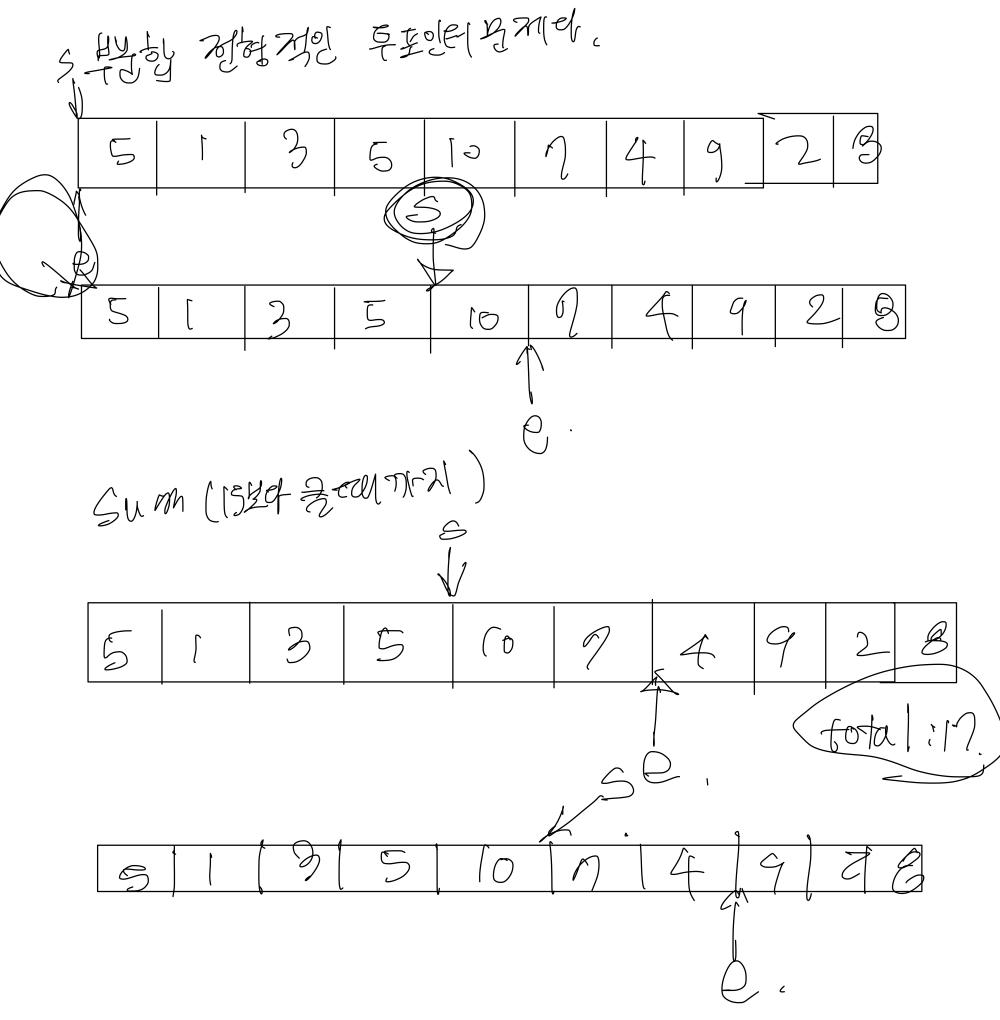 s 부분합 전형적인 투포인터 문제다.
5 1 3 5 10 7 4 9 2 8
s
e
5 1 3 5 10 7 4 9 2 8
e.
Sum (15보다 클때까지)
s
5 1 3 5 10 7 4 9 2 8
total : 17.
s e.
5 1 3 5 10 7 4 9 2 8
e.